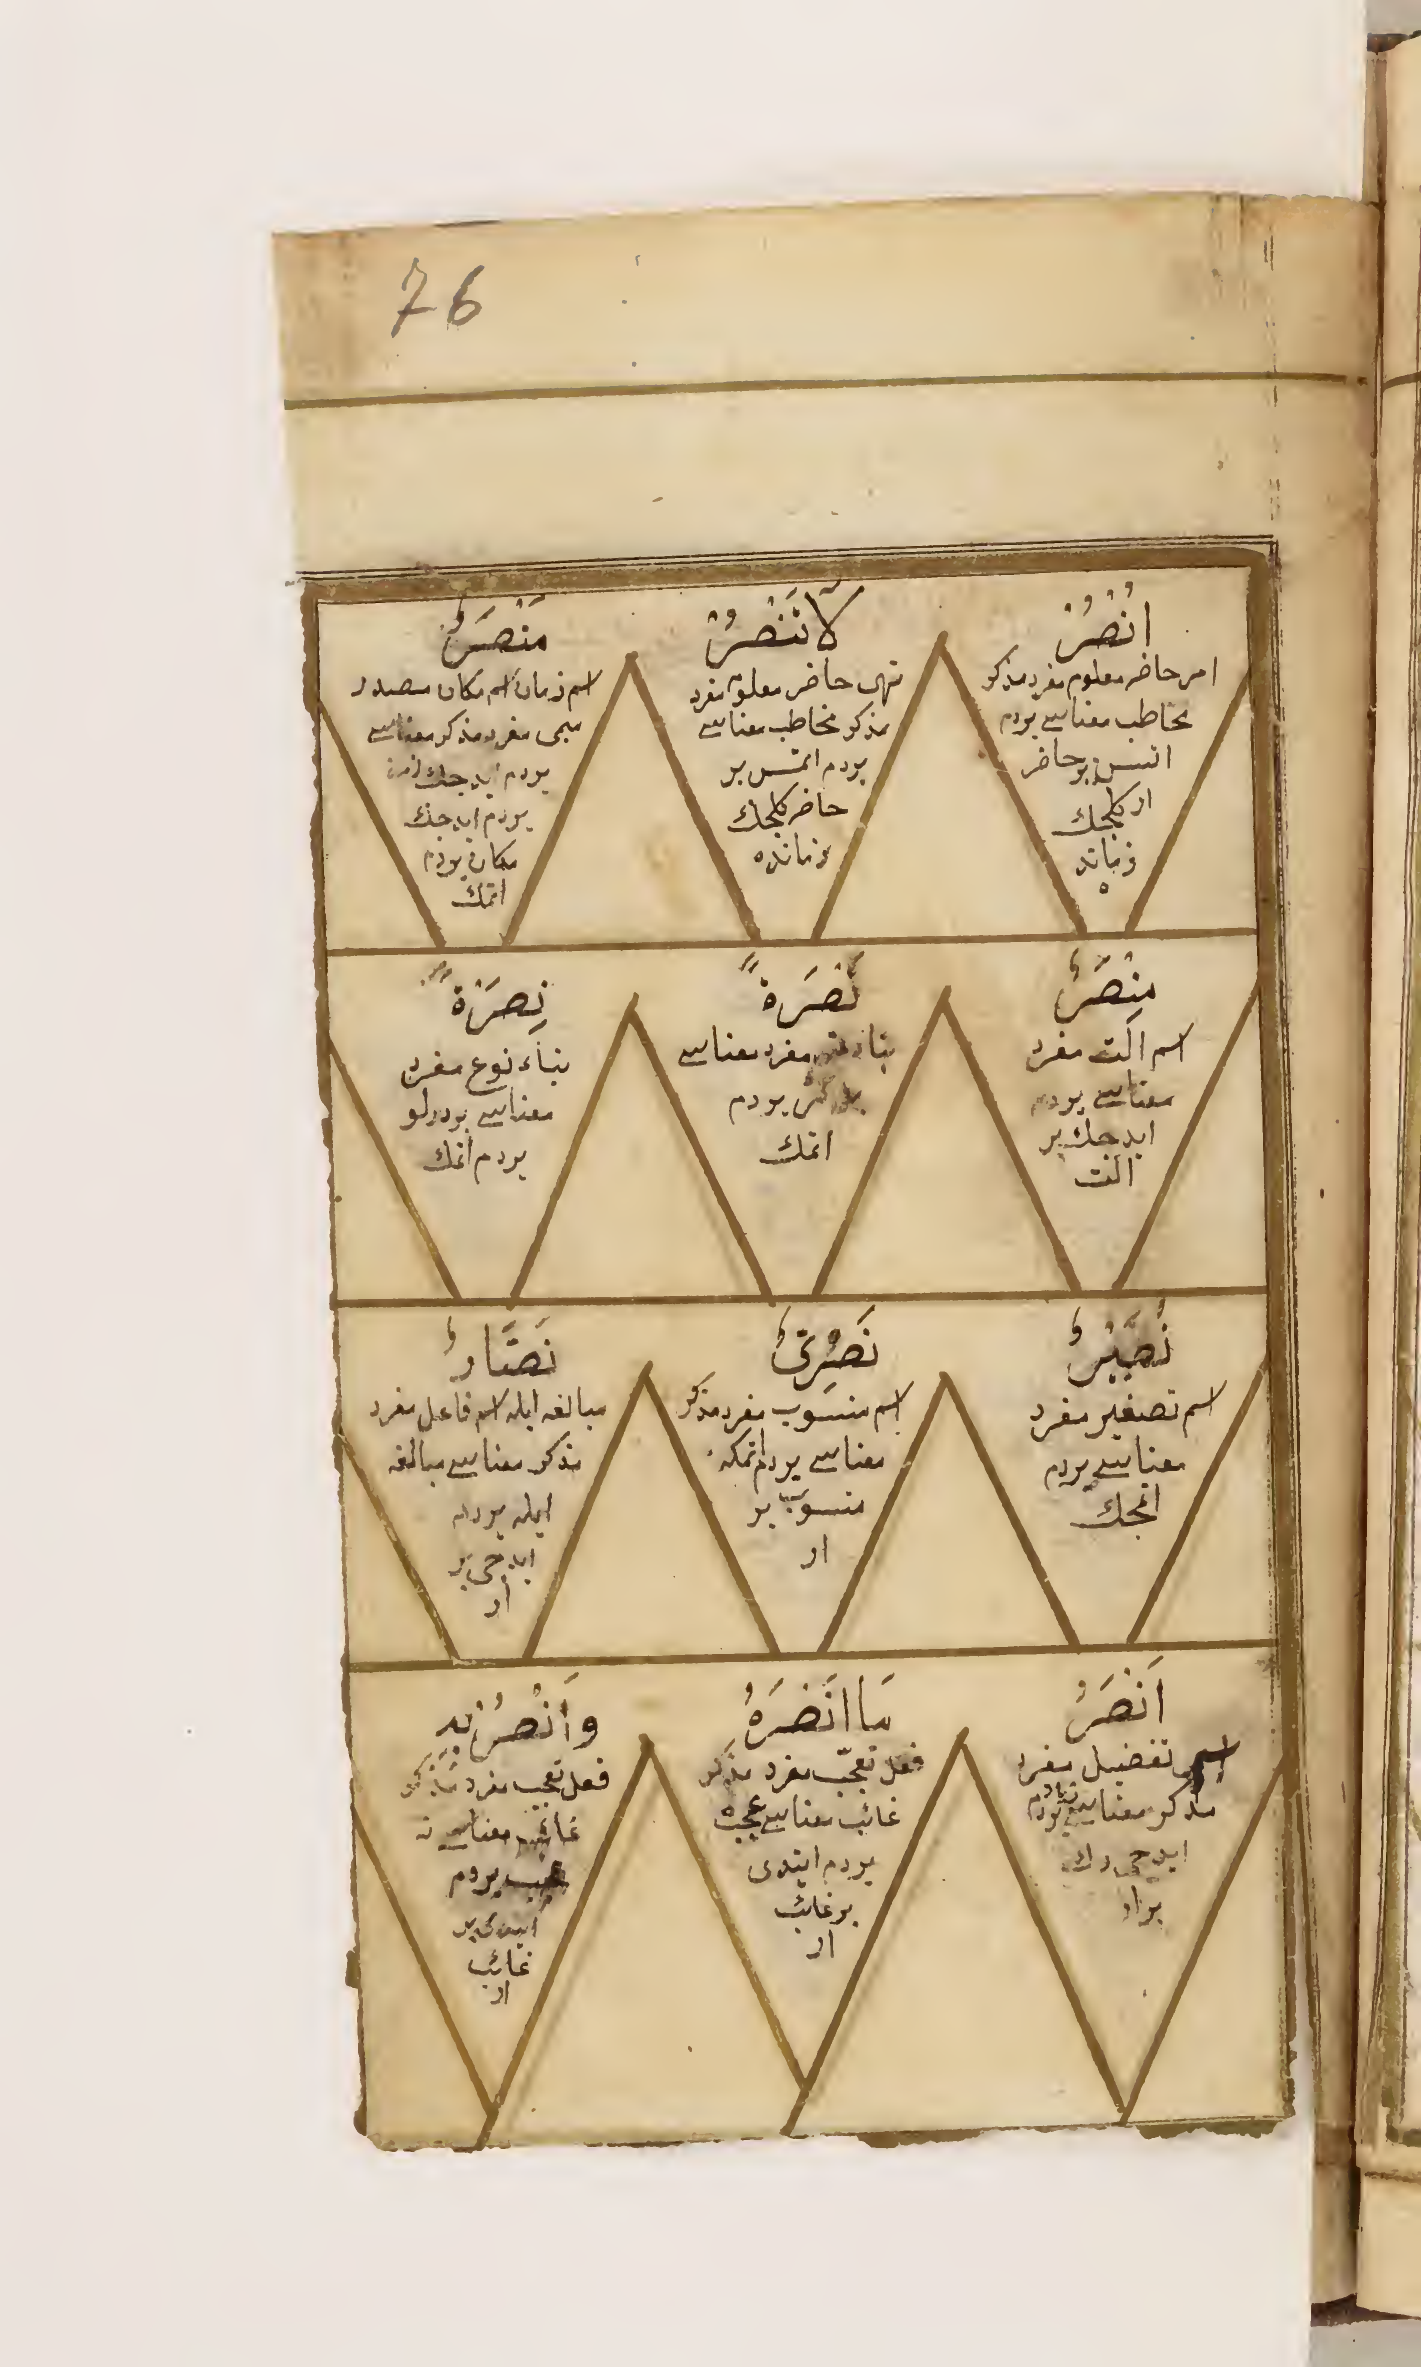 76
اُنْصُرْ
امر حاضر معلوم مفرد مذكر
مخاطب معناسى يردم
اتسن بر حاضر
ار كلجك
زمانده
لَا تَنْصُرْ
نهى حاضر معلوم مفرد
مذكر مخاطب معناسى
يردم اتمسن بر
حاضر كلجك
زمانده
مَنْصَرٌ
اسم زمان اسم مكان مصدر
ميمى مفرد مذكر معناسى
يردم ايدجك
يردم ايدجك
مكان يردم
اتمك
مِنْصَرٌ
اسم الت مفرد
معناسى يردم
ايدجك بر
الت
نَصْرَةً
بناء مفرد معناسى
يردم
اتمك
نِصْرَةً
بناء نوع مفرد
معناسى بر درلو
يردم اتمك
نُصَيْرٌ
اسم تصغير مفرد
معناسى يردم
اتمجك
نَصْرِىٌّ
اسم منسوب مفرد مذكر
معناسى يردم اتمكه
منسوب بر
ار
نَصَّارٌ
مبالغه ايله اسم فاعل مفرد
مذكر معناسى مبالغه
ايله يردم
ايدجى بر
ار
اَنْصَرُ
اسم تفضيل مفرد
مذكر معناسى زياده يردم
ايدجى رك
بر ار
مَا اَنْصَرَهُ
فعل تعجب مفرد مذكر
غائب معناسى عجب
يردم ايتدى
بر غائب
ار
وَاَنْصِرْ بِهِ
فعل تعجب مفرد مذكر
غائب معناسى نه
عجب يردم
ايتدى بر
غائب
ار